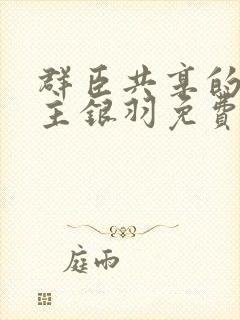 群臣共享的
主银羽免费
庭雨